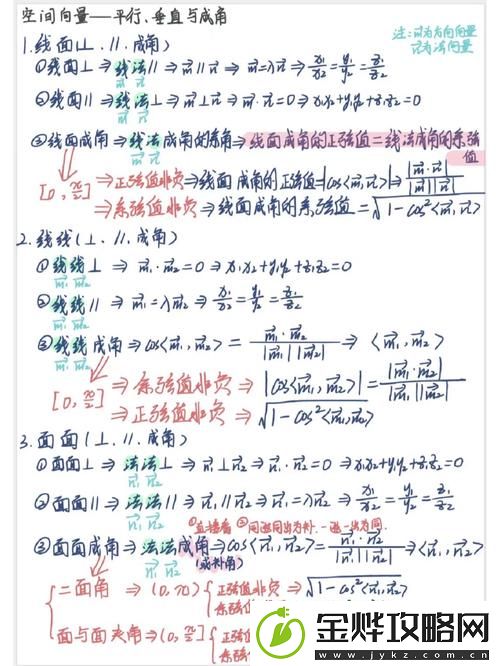 空间向量——平行、垂直与成角
注: m⃗为方向向量
n⃗为法向量
1.线面(⊥.∥.成角)
①线面⊥⇒线法∥⇒m⃗∥n⃗⇒m⃗=λn⃗⇒x₁/x₂=y₁/y₂=z₁/z₂
m⃗ n⃗
②线面∥⇒线法⊥⇒m⃗⊥n⃗⇒m⃗·n⃗=0⇒x₁x₂+y₁y₂+z₁z₂=0
m⃗ n⃗
③线面成角⇒线法成角的余角⇒线面成角的正弦值=线法成角的余弦值
m⃗ n⃗
[0,π/2]⇒正弦值非负⇒线面成角的正弦值=|cos<m⃗,n⃗>|⇒|m⃗·n⃗|/|m⃗||n⃗|
⇒余弦值非负⇒线面成角的余弦值=√1-cos²<m⃗,n⃗>
2.线线(⊥.∥.成角)
①线线⊥⇒m⃗₁·m⃗₂=0⇒x₁x₂+y₁y₂+z₁z₂=0
m⃗₁ m⃗₂
②线线∥⇒m⃗₁=λm⃗₂⇒x₁/x₂=y₁/y₂=z₁/z₂
m⃗₁ m⃗₂
③线线成角⇒cos<m⃗₁,m⃗₂>=m⃗₁·m⃗₂/|m⃗₁||m⃗₂|⇒<m⃗₁,m⃗₂>
m⃗₁ m⃗₂
[0,π/2]⇒余弦值非负⇒|cos<m⃗₁,m⃗₂>|=|m⃗₁·m⃗₂|/|m⃗₁||m⃗₂|
⇒正弦值非负⇒√1-cos²<m⃗₁,m⃗₂>
3.面面(⊥.∥.成角)
①面面⊥⇒法法⊥⇒n⃗₁⊥n⃗₂⇒n⃗₁·n⃗₂=0⇒x₁x₂+y₁y₂+z₁z₂=0
n⃗₁ n⃗₂
②面面∥⇒法法∥⇒n⃗₁∥n⃗₂⇒n⃗₁=λn⃗₂⇒x₁/x₂=y₁/y₂=z₁/z₂
n⃗₁ n⃗₂
①直接看 ②同进同出为补.一进一出为同.
③面面成角⇒法法成角⇒cos<n⃗₁,n⃗₂>=n⃗₁·n⃗₂/|n⃗₁||n⃗₂|⇒<n⃗₁,n⃗₂>
n⃗₁ n⃗₂ (或补角)
二面角⇒(0,π){正弦值非负⇒√1-cos²<n⃗₁,n⃗₂>
余弦值
面与面夹角⇒(0,π/2]{正弦值
余弦
金烨攻略网
www.jykz.com.cn